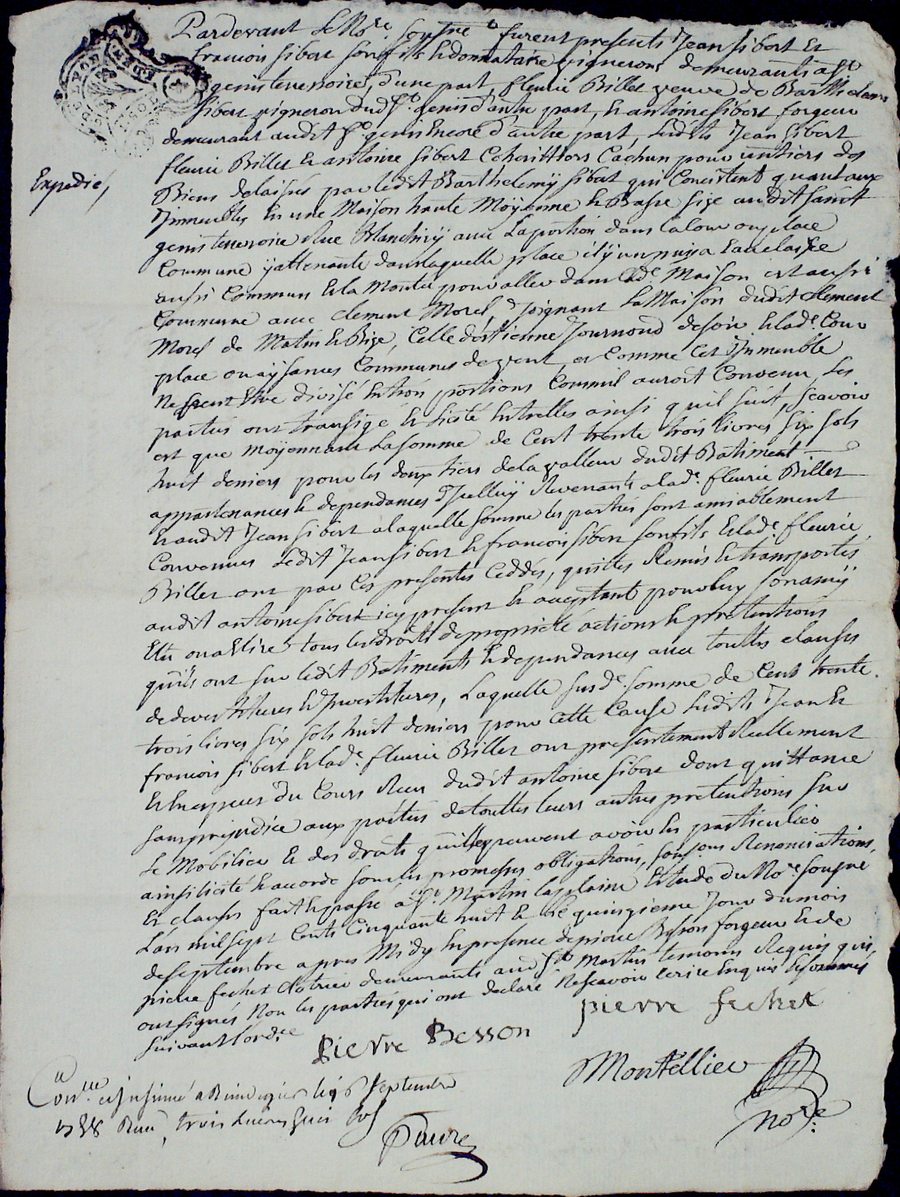 Pardevant le No.re soussné furent presents Jean Sibert Et
francois Sibert son fils Et donnataire vignerons demeurants a St
genis terrenoire, d'une part, fleurie Billet veuve de Barthelemy
Sibert vigneron dud. St genis d'autre part, Et antoine Sibert forgeur
demeurant audit St genis Encore d'autre part, Lesdits Jean Sibert
fleurie Billet Et antoine Sibert Coheritiers Chacun pour un tiers des
Biens delaissés par ledit Barthelemy Sibert qui Consistent quant aux
Expedié
Immeubles En une Maison haute Moyenne Et Basse Size audit Saint
genis terrenoire Rue avec La portion dans la Cour ou place
Commune y attenante dans laquelle place il y a un puis a Eau claire
aussi Commun Et la Montée pour aller dans lad.e Maison est aussi
Commune avec Clement Morel, Joignant La Maison dudit Clement
Morel de Matin Et Bize, Celle d'Estienne Journoud de soir Et lad.e Cour
place ou aysances Communes de vent, et Comme Cet Immeuble
Ne peut Etre divisé En trois portions Comme il auroit Convenu Les
parties ont transigé Et licité Entrelles ainsi qu'il suit, Scavoir
est que Moyennant La somme de Cent trente trois livres six sols
huit deniers pour les deux tiers de la valleur dudit Batiment
appartenances Et dependances d'Icelluy Revenants a lad.e fleurie Billet
Et audit Jean Sibert a laquelle somme les parties sont amiablement
Convenues Ledit Jean Sibert Et francois Sibert son fils Et lad.e fleurie
Billet ont par Ces presentes Ceddés, quittés Remis Et transportés
audit antoine Sibert icy present Et acceptant pour luy son amy
Elu ou a Elire tous les droits de proprieté actions Et pretentions
qu'ils ont sur ledit Batiments Et dependances avec touttes clauses
de devestitures Et Investitures, Laquelle susd.e somme de Cent trente
trois livres six sols huit deniers pour Cette Cause Lesdits Jean Et
francois Sibert Et lad.e fleurie Billet ont presentement Reellement
Et En especes du Cours Receu dudit antoine Sibert dont quittance
sans prejudice aux parties de touttes leurs autres pretentions sur
Le Mobilier Et des droits qu'elles peuvent avoir En particulier
ainsi licité Et accordé sous les promesses obligations, Renonciations,
Et clauses fait Et passé a St Martin la plaine Etude du No.re soussné
L'an mil sept Cents Cinquante huit Et Le quinzieme Jour du mois
de Septembre apres Midy En presence de pierre Besson forgeur Et de
pierre fechet demeurants aud. St Martin temoins Requis qui
ont signés Non les parties qui ont declaré Ne scavoir ecrire Enquis Et sommés
suivant l'ord.ce
Pierre Besson pierre fechet
Montellier
no.re
Con.lle et Insinué a Rivedegier le 26 Septembre
1758 Receu trois livres sols
Faure